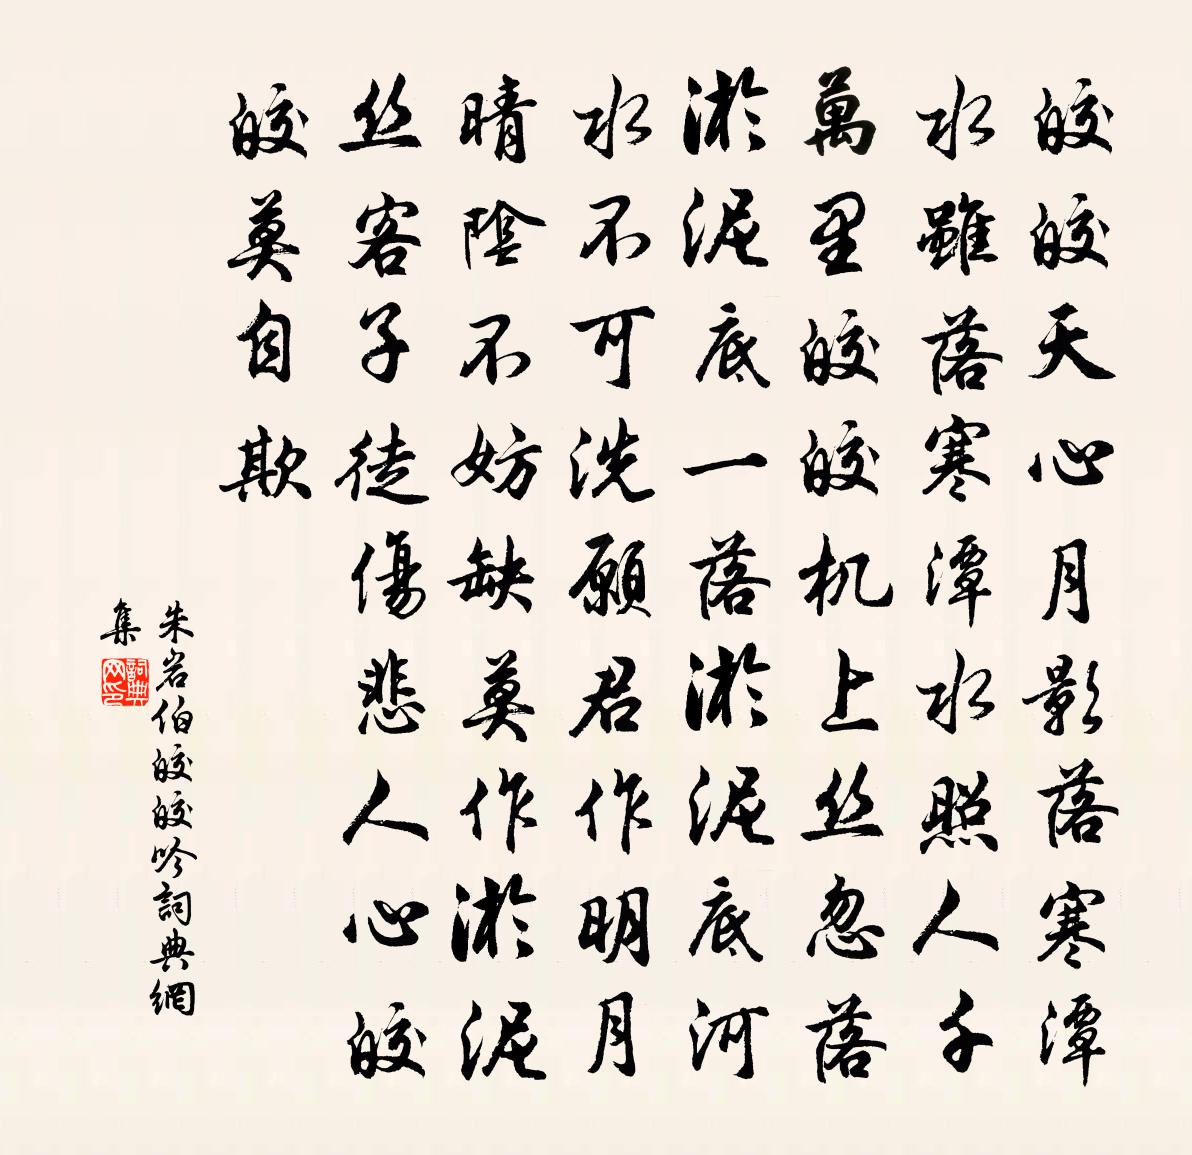 皎皎天心月影落寒潭
水雖落寒潭水照人千
萬里皎皎机上丝忽落
淤泥底一落淤泥底河
水不可洗願君作明月
晴陰不妨缺莫作淤泥
丝客子徒傷悲人心皎
皎莫自欺
朱岩伯皎皎吟詞典網
集
詞典
网印